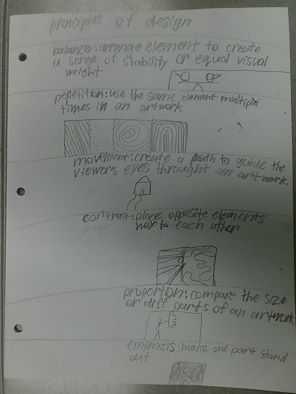 principles of design
balance: arrange element to create
a sense of stability or equal visual
weight
repetition: use the same element multiple
times in an artwork
movement: create a path to guide the
viewers eyes throught an artwork
contrast: place opposite elements
next to each other
proportion: compare the size
or diff parts of an artwork
emphasis: make one part stand
out